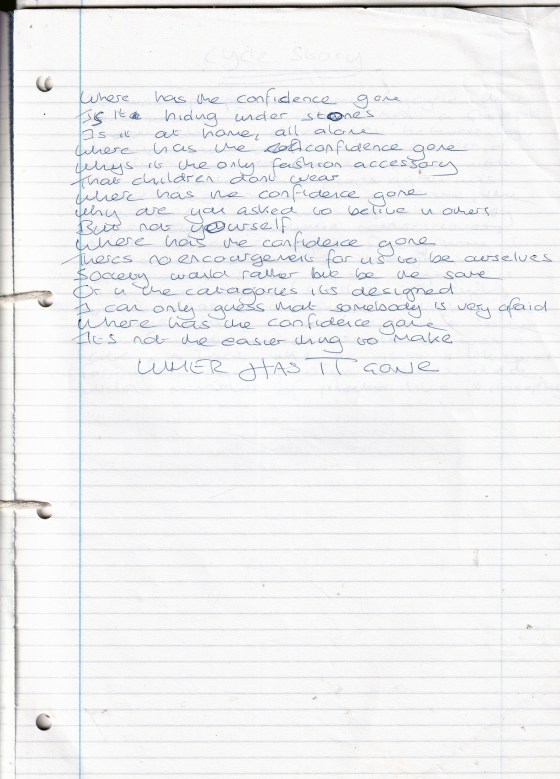 Where has the confidence gone
Is it hiding under stones
Is it at home, all alone
Where has the confidence gone
Whys it the only fashion accessory
That children dont wear
Where has the confidence gone
Why are you asked to belive in others
But not yourself
Where has the confidence gone
Theres no encouragement for us to be ourselves
Society would rather be the same
Or in the catagories its designed
I can only guess that somebody is very afraid
Where has the confidence gone
It's not the easier thing to make
WHER HAS IT GONE